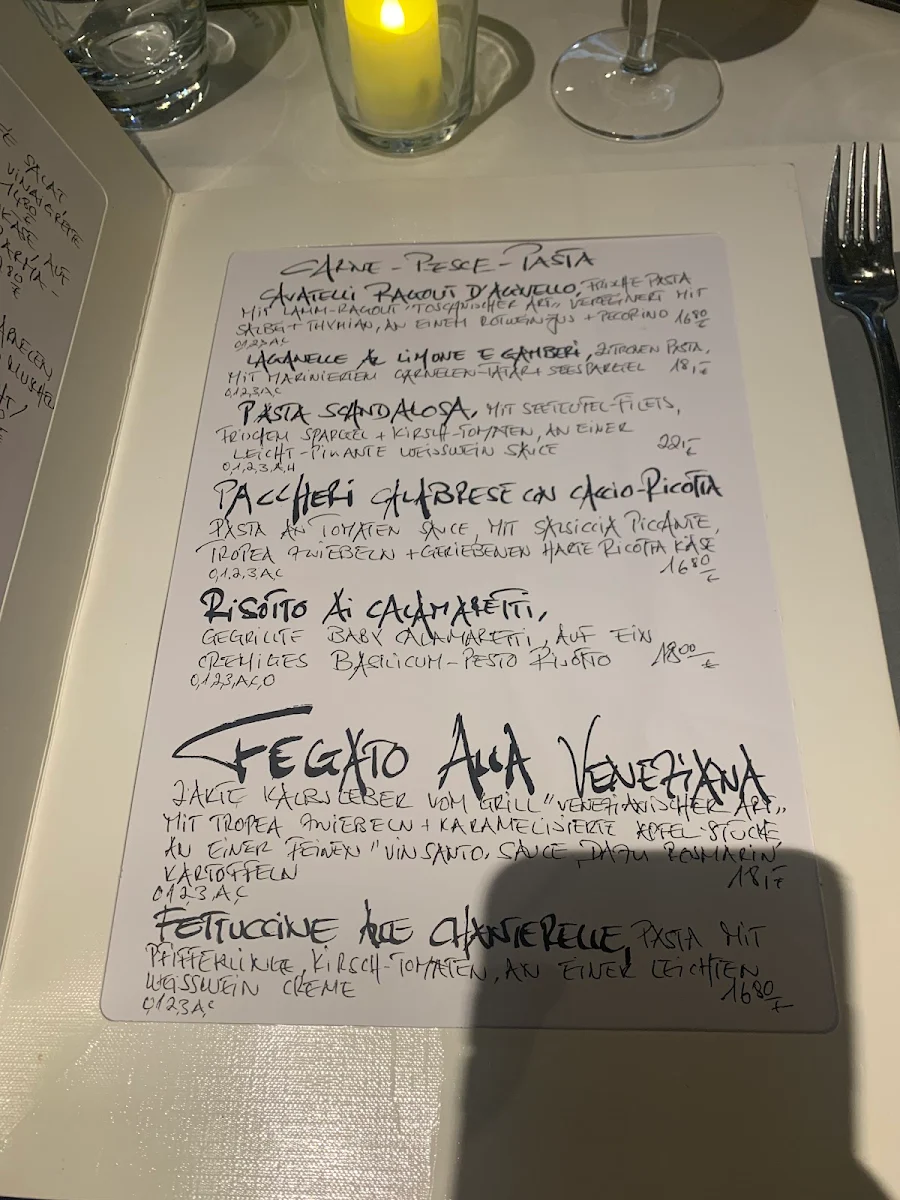 SALAT
VINAIGRETTE
1480
€
AUF
CARNE - PESCE - PASTA
CAVATELLI RAGOUT D'AGNELLO, FRISCHE PASTA
MIT LAMM-RAGOUT "TOSCANISCHER ART" VERFEINERT MIT
SALBEI + THYMIAN, AN EINEM ROTWEINJUS + PECORINO 1680 €
0,1,2,3,A,C
LAGANELLE AL LIMONE E GAMBERI, ZITRONEN PASTA,
MIT MARINIERTEM GARNELEN-TATAR + SEESPARGEL 18,- €
0,1,2,3,A,C
PASTA SCANDALOSA, MIT SEETEUFEL-FILETS,
FRISCHEM SPARGEL + KIRSCH-TOMATEN, AN EINER
LEICHT-PIKANTE WEISSWEIN SAUCE 22,- €
0,1,2,3,A,H
PACCHERI CALABRESE CON CACCIO-RICOTTA
PASTA AN TOMATEN SAUCE, MIT SALSICCIA PICCANTE,
TROPEA ZWIEBELN + GERIEBENEN HARTE RICOTTA KÄSE
0,1,2,3,A,C 1680 €
RISOTTO AI CALAMARETTI,
GEGRILLTE BABY CALAMARETTI, AUF EIN
CREMIGES BASILICUM-PESTO RISOTTO 1800 €
0,1,2,3,A,C,O
FEGATO ALLA VENEZIANA
ZARTE KALBSLEBER VOM GRILL "VENEZIANISCHER ART"
MIT TROPEA ZWIEBELN + KARAMELISIERTE APFEL-STÜCKE,
AN EINER FEINEN "VINSANTO" SAUCE, DAZU ROSMARIN
KARTOFFELN 18,- €
0,1,2,3,A,C
FETTUCCINE ALLE CHANTERELLE, PASTA MIT
PFIFFERLINGE, KIRSCH-TOMATEN, AN EINER LEICHTEN
WEISSWEIN CREME 1680 €
0,1,2,3,A,C